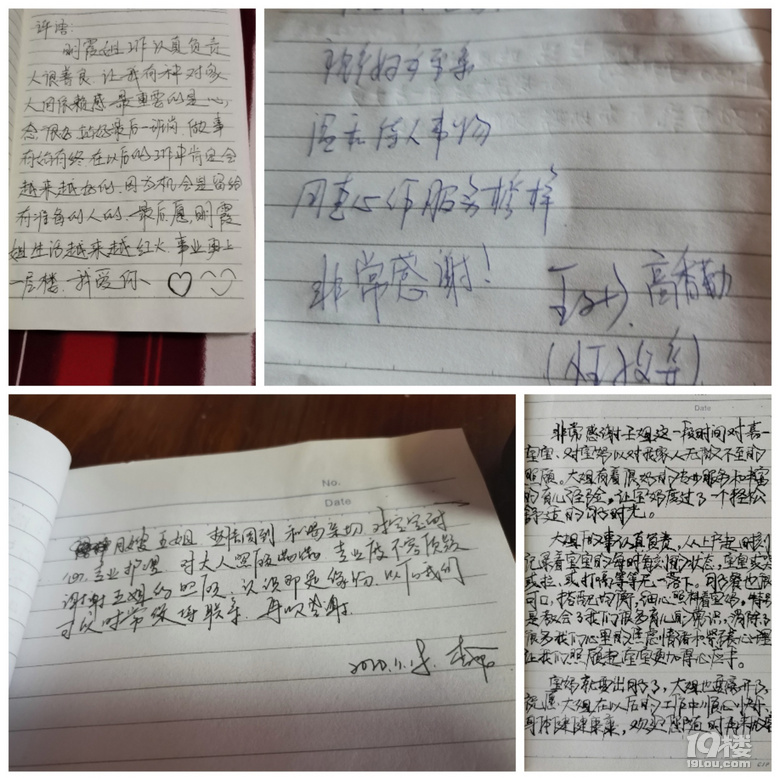 评语:
刚霞姐工作认真负责
人很善良、让我有种对家
人间很粘感 最重要的是心
态很好 站好最后一班岗、做事
有始有终 在以后的工作中肯定会
越来越好的、因为机会是留给
有准备的人的、最后愿刚霞
姐生活越来越红火、事业更上
一层楼、我爱你、
温和待人事物
用真心作服务
非常感谢！
高香勤
No.
Date
月嫂王姐 和蔼亲切 对宝宝耐
心专业护理 对大人照顾 专业度不容质疑
谢谢王姐的照顾、认识即是缘份 以后我们
可以时常保持联系 再次感谢
2020.11.15
Date
非常感谢王姐这一段时间对喜
宝宝、对宝妈以对我家人无微不至的
照顾。大姐有着很好的专业服务和丰富
的育儿经验，让宝妈度过了一个轻松
舒适的月子时光。
大姐做事认真负责，从上户起时刻
记录着宝宝的每时每刻的状态，宝宝或尿
或拉，或打嗝等等无一落下。月子餐也很
可口，搭配均衡，细心照料着宝妈，特别
是教会了我们很多育儿知识，消除了
很多我们心里的焦虑情绪和紧张心理
让我们照顾起宝宝更加得心应手。
宝妈就要出月子了，大姐也要离开了
祝愿大姐在以后的工作中顺心顺利、
身体健健康康，欢迎随时再来
19楼
19lou.com